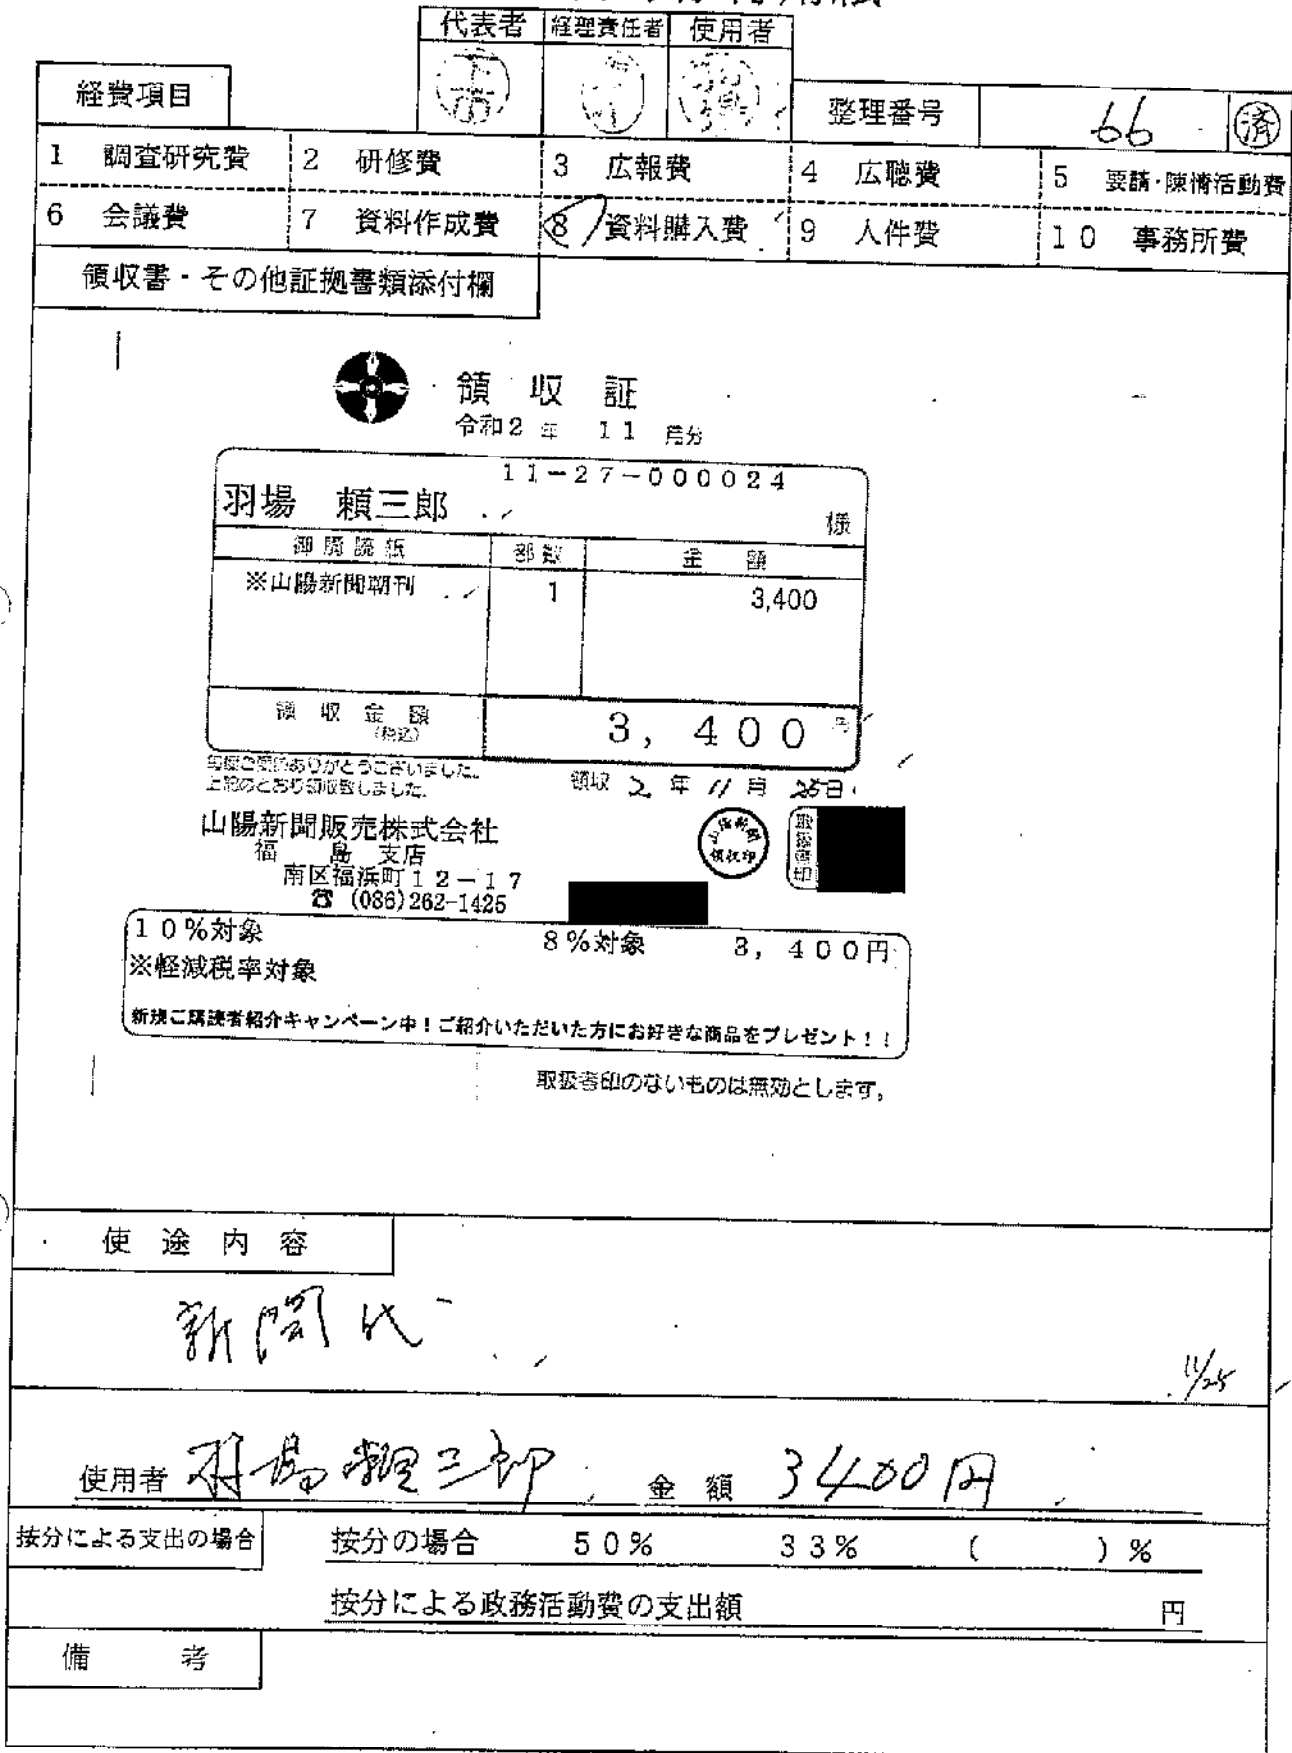 代表者 経理責任者 使用者
経費項目
整理番号 66 済
1 調査研究費 2 研修費 3 広報費 4 広聴費 5 要請・陳情活動費
6 会議費 7 資料作成費 8 資料購入費 9 人件費 10 事務所費
領収書・その他証拠書類添付欄
領収証
令和2年 11月分
11-27-000024
羽場 頼三郎 様
御購読紙 部数 金額
※山陽新聞朝刊 1 3,400
領収金額(税込) 3,400円
毎度ご愛読ありがとうございました。
上記のとおり領収致しました。
領収 2年11月25日
山陽新聞販売株式会社
福島支店
南区福浜町12-17
☎ (086)262-1425
山陽新聞 領収印
取扱者印
10%対象 8%対象 3,400円
※軽減税率対象
新規ご購読者紹介キャンペーン中!ご紹介いただいた方にお好きな商品をプレゼント!!
取扱者印のないものは無効とします。
使途内容
新聞代
11/25
使用者 羽場頼三郎 金額 3400円
按分による支出の場合 按分の場合 50% 33% ( )%
按分による政務活動費の支出額 円
備考